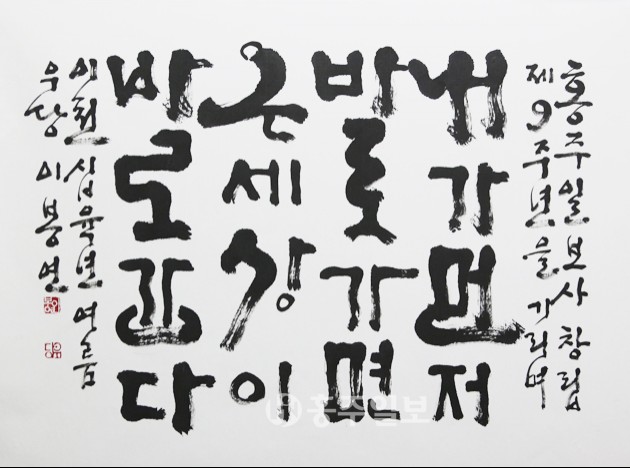 홍주일보사 창립
제9주년을 기리며
내가 먼저
바로 가면
온 세상이
바로 간다
이천십육년 여름
우당 이봉연
홍주일보